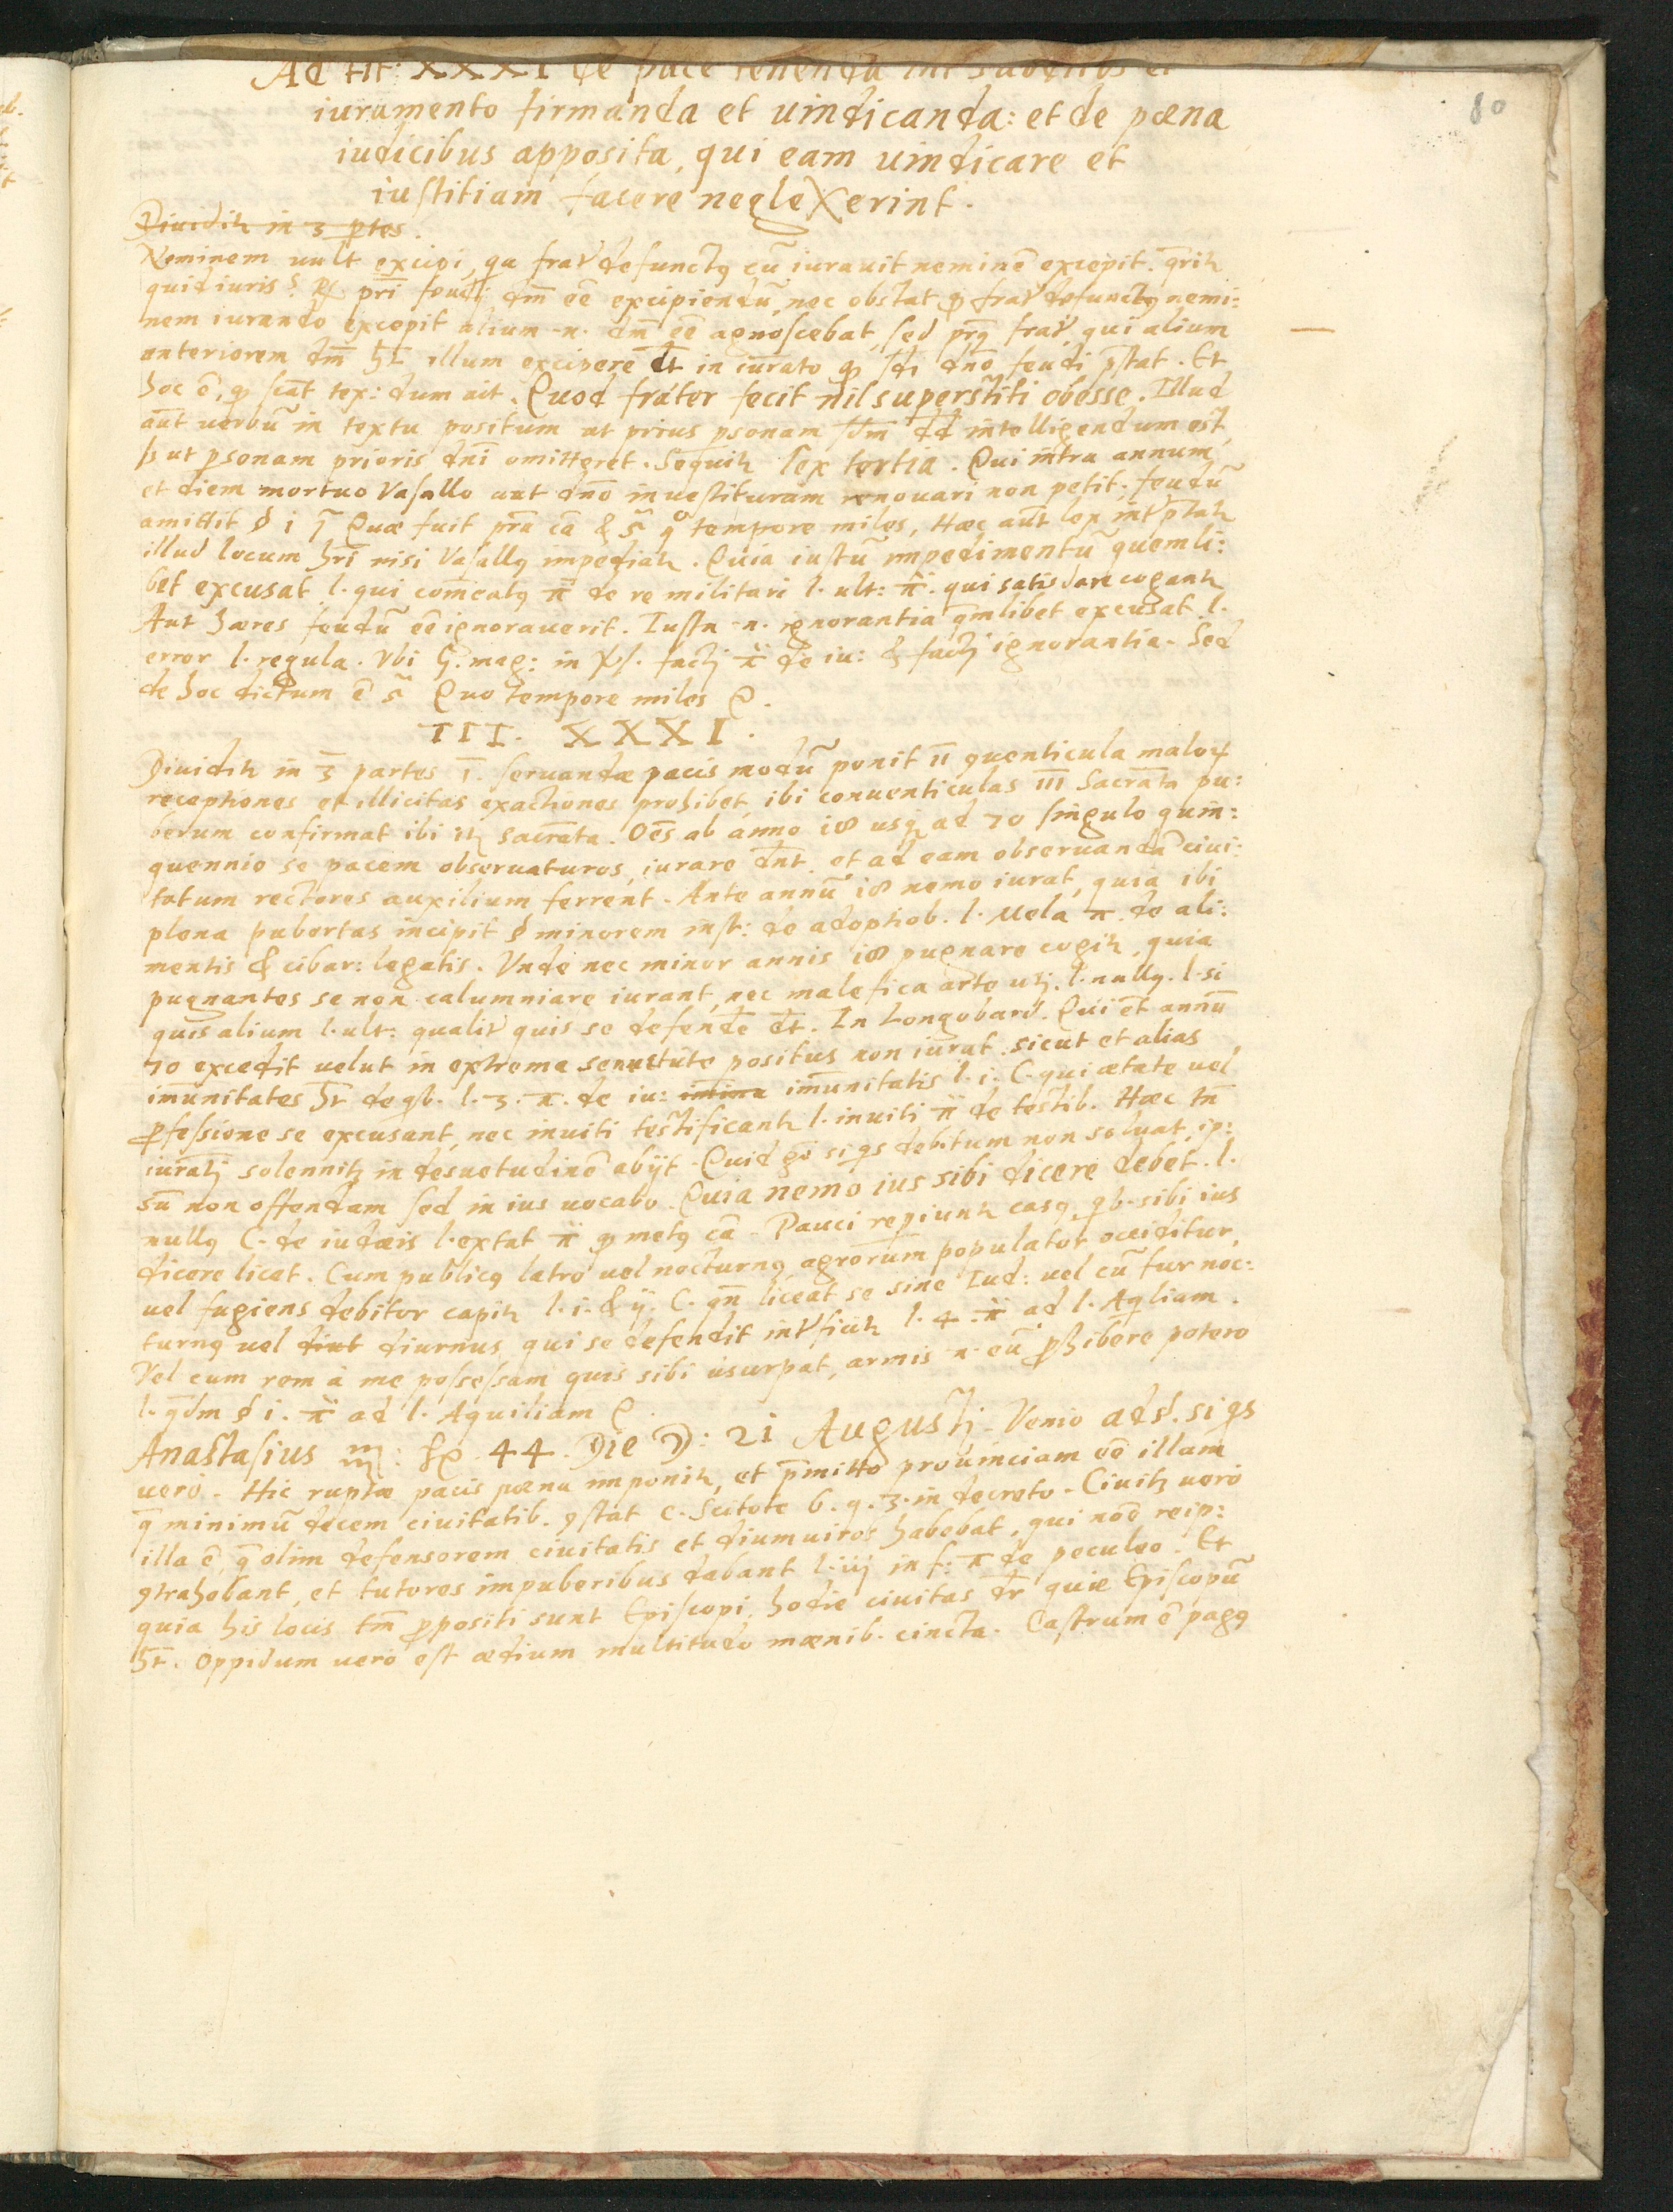 80
Ad tit: XXXI de pace tenenda int subditos et
iuramento firmanda et uindicanda: et de pœna
iudicibus apposita, qui eam uindicare et
iustitiam facere neglexerint.
Diuidit in 3 ptes.
Neminem uult excipi, qa frar defunctus cũ iurauit neminẽ excepit. qrit
quid iuris? pri feudi dm̃ eẽ excipiendũ, nec obstat frar defunctus nemi:
nem iurando excepit alium .n. dm̃ eẽ agnoscebat, sed frar, qui alium
anteriorem dm̃ ht illum excipere dt in iurato qd dno feudi pstat. Et
hoc ẽ, qd tex: dum ait. Quod frater fecit nil superstiti obesse. Illud
aut uerbũ in textu positum ut prius psonam intelligendum est,
ut psonam prioris dni omitteret. Sequit lex tertia. Qui intra annum
et diem mortuo Vasallo aut dno inuestituram renouari non petit. feudũ
amittit § i Quæ fuit pra cã & sͣ qo tempore miles, Hæc aut lex intptat
illud locum hri nisi Vasallus impediat. Quia iustũ impedimentũ quemli:
bet excusat l. qui comeatus π de re militari l. ult: π. qui satisdare cogant
Aut hæres feudũ eẽ ignorauerit. Iusta .n. ignorantia qmlibet excusat l.
error l. regula. Vbi G. mag: in facti π de iu: & facti ignorantia. Sed
de hoc dictum ẽ sͣ Quo tempore miles
III. XXXI.
Diuidit in 3 partes I. seruandæ pacis modũ ponit II conuenticula malor
receptiones et illicitas exactiones prohibet, ibi conuenticulas III Sacramta pu:
berum confirmat ibi it sacrata. Oẽs ab anno 18 usq ad 70 singulo quin:
quennio se pacem obseruaturos, iurare dnt. et ad eam obseruandã ciui:
tatum rectores auxilium ferrent. Ante annũ 18 nemo iurat, quia ibi
plena pubertas incipit § minorem inst: de adoptiob. l. Mela π. de ali:
mentis & cibar: legatis. Vnde nec minor annis 18 pugnare cogit, quia
pugnantes se non calumniare iurant, nec malefica arte uti. l. nullus. l. si
quis alium l. ult: qualir quis se defende dt. In Longobard. Qui et annũ
70 excedit uelut in extrema senectute positus non iurat. sicut et alias
imũnitates ht de qb. l. 3. π. de iu: imina imũnitatis l. i. C. qui ætate uel
pfessione se excusant, nec inuiti testificant l. inuiti π de testib. Hæc tñ
iurati solennit in desuetudinẽ abijt. Quid go si qs debitum non soluat, ip:
sũ non offendam sed in ius uocabo. Quia nemo ius sibi dicere debet. l.
nullus C. de iudæis l. extat π qd metus cã. Pauci repiunt casus, qb. sibi ius
dicere licet. Cum publicus latro uel nocturnus agrorum populator occiditur,
uel fugiens debitor capit l. i. & ij. C. qñ liceat se sine Iud: uel cũ fur noc:
turnus uel diut diurnus, qui se defendit intficit l. 4. π ad l. Aqliam.
Vel cum rem à me possessam quis sibi usurpat, armis .n. eũ phibere potero
l. qdm § i. π ad l. Aquiliam
Anastasius 44. Die D: 21 Augusti. Venio ad §. si qs
uero. Hic ruptæ pacis pœna imponit, et pmitto prouinciam eẽ illam
q minimũ decem ciuitatib. constat c. Scitote 6. q. 3. in decreto. Ciuit uero
illa ẽ, q olim defensorem ciuitatis et diumuiros habebat, qui noẽ reip:
contrahebant, et tutores impuberibus dabant l. iij in f: π de peculeo. Et
quia his locis tm̃ ppositi sunt Episcopi, hodie ciuitas dr quæ Episcopũ
ht. Oppidum uerò est ædium multitudo mœnib. cincta. Castrum ẽ pagus